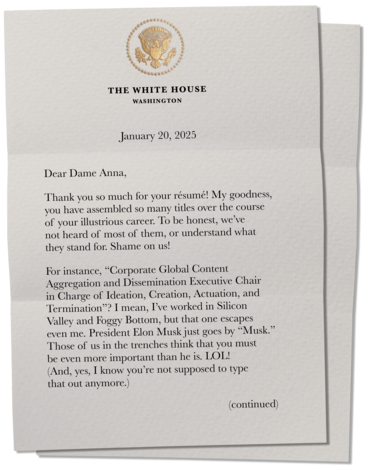 THE WHITE HOUSE
WASHINGTON
January 20, 2025
Dear Dame Anna,
Thank you so much for your résumé! My goodness,
you have assembled so many titles over the course
of your illustrious career. To be honest, we’ve
not heard of most of them, or understand what
they stand for. Shame on us!
For instance, “Corporate Global Content
Aggregation and Dissemination Executive Chair
in Charge of Ideation, Creation, Actuation, and
Termination”? I mean, I’ve worked in Silicon
Valley and Foggy Bottom, but that one escapes
even me. President Elon Musk just goes by “Musk.”
Those of us in the trenches think that you must
be even more important than he is. LOL!
(And, yes, I know you’re not supposed to type
that out anymore.)
(continued)